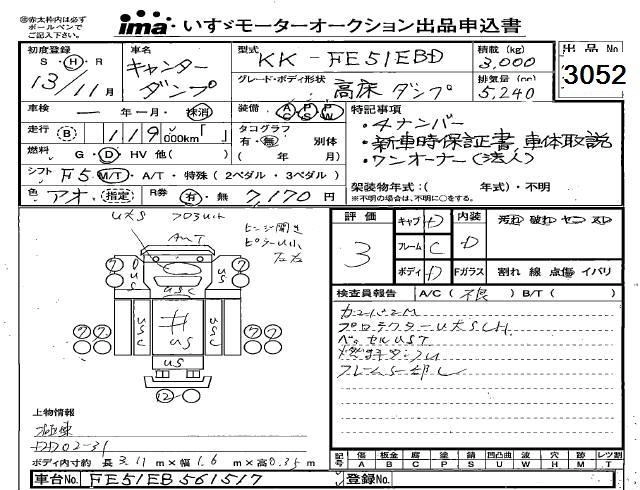 ◎赤太枠内は必ず
ボールペンで
ご記入下さい。
ima いすゞモーターオークション出品申込書
初度登録 S・H・R 13/11月
車名 キャンター ダンプ
型式 KK-FE51EBD
グレード・ボディ形状 高床ダンプ
積載(kg) 3,000
排気量(cc) 5,240
出品No 3052
車検 一年一月・抹消
装備 AC PS PW
走行 B 119,000km「 」
タコグラフ 有・無 別体 ( 年 月)
燃料 G・D・HV 他( )
シフト F5 M/T・A/T・特殊(2ペダル・3ペダル)
色 アオ (指定) R券 有・無 7,170円
特記事項
・4ナンバー
・新車時保証書、車体取説
・ワンオーナー(法人)
架装物年式:( 年式)・不明
※不明の場合は、不明に○をする。
U大S フロントリット
AUT
ヒンジ開き
US
US
USC
USC
USC
井
US
US
⑦ ⑦
⑦⑦ ⑦⑦
⑫
評価 3
キャブ D 内装 D
フレーム C
ボディ D Fガラス
汚れ 破れ セニ スレ
割れ 線 点傷 イバリ
検査員報告 A/C(不良) B/T( )
カエバエM
プロテクターU大SCH
ベッセルUST
フレームS一部し
上物情報
極東
DD02-31
ボディ内寸約 長3.11m×幅1.6m×高0.35m
記号 傷 板金 腐 塗 錆 凹凸曲 波 穴 跡 レツ割
A B C P S U W H M T
車台No. FE51EB 561517 登録No.